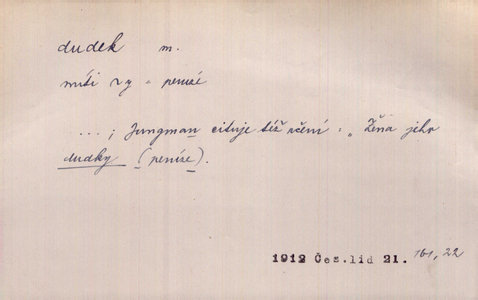 dudek m.
peníze
...; Jungman cituje též rčení: „ Žena jeho
dudky (peníze).
1912 Čes.lid 21. 161, 22